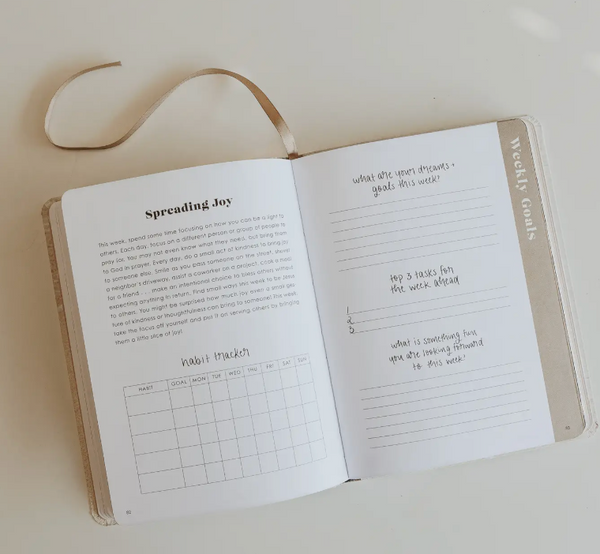 Spreading Joy
This week, spend some time focusing on how you can be a light to
others. Each day, focus on a different person or group of people to
pray for. You may not even know what they need, but bring them
to God in prayer. Every day, do a small act of kindness to bring joy
to someone else. Smile as you pass someone on the street, shovel
a neighbor's driveway, assist a coworker on a project, cook a meal
for a friend . . . make an intentional choice to bless others without
expecting anything in return. Find small ways this week to be kind
to others. You might be surprised how much joy even a small ges-
ture of kindness or thoughtfulness can bring to someone! This week,
take the focus off yourself and put it on serving others by bringing
them a little slice of joy!
habit tracker
HABIT GOAL MON TUE WED THU FRI SAT SUN
what are your dreams +
goals this week?
top 3 tasks for
the week ahead
1
2
3
what is something fun
you are looking forward
to this week?
Weekly Goals